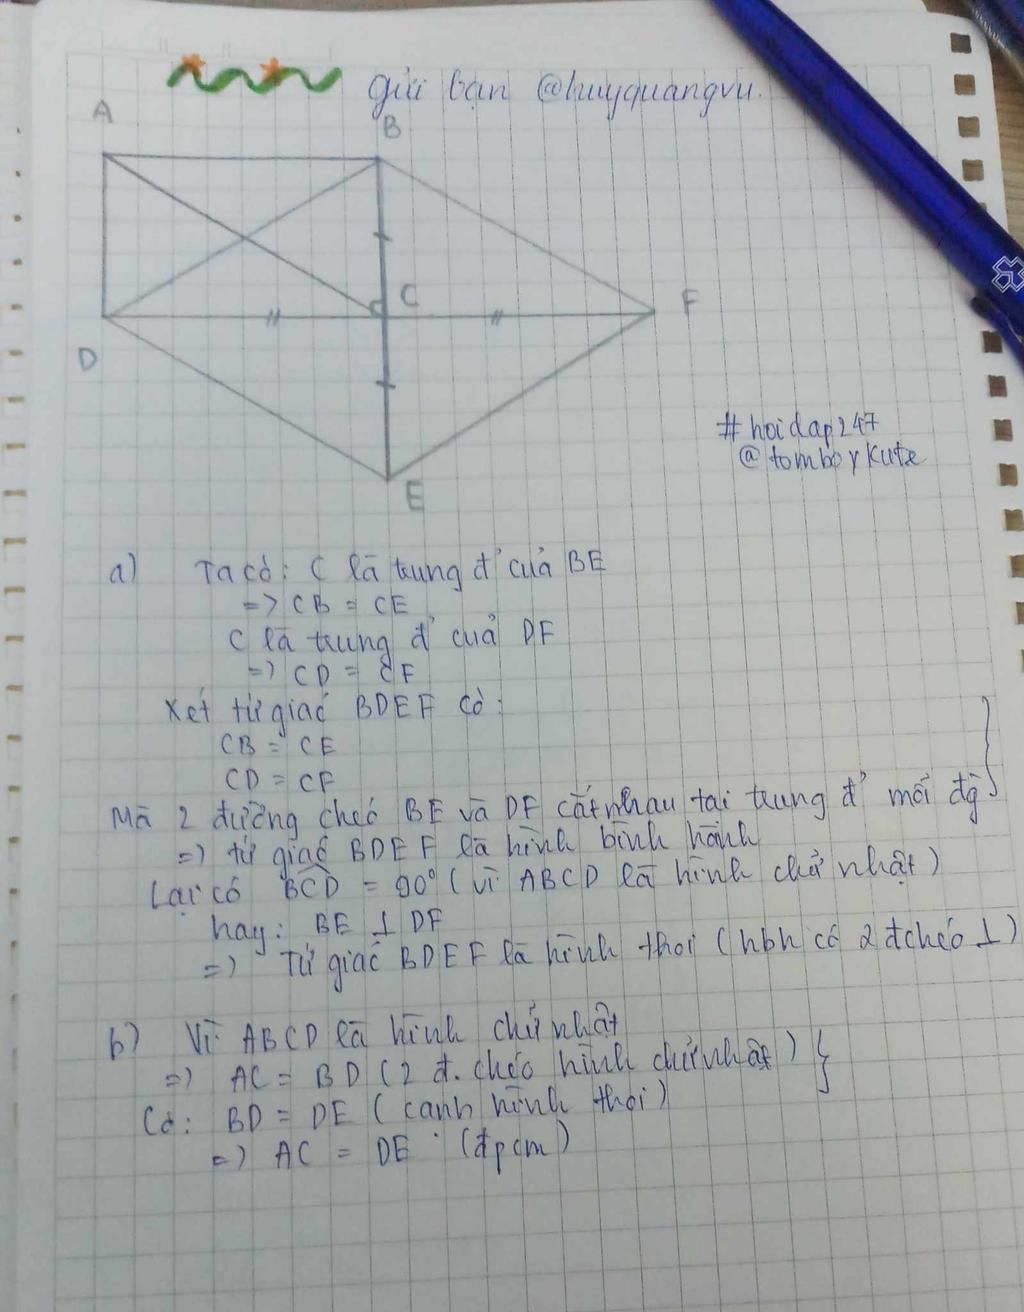 gửi bạn @huyquangvu.
A
B
C
F
D
E
#hoidap247
@tomboykute
a) Ta có: C là trung đ' của BE
=> CB = CE
C là trung đ' của DF
=> CD = CF
Xét tứ giác BDEF có:
CB = CE
CD = CF
Mà 2 đường chéo BE và DF cắt nhau tại trung đ' mỗi đg
=> tứ giác BDEF là hình bình hành
Lại có BCD = 90° (vì ABCD là hình chữ nhật)
hay: BE ⊥ DF
=> Tứ giác BDEF là hình thoi (hbh có 2 đchéo ⊥)
b) Vì ABCD là hình chữ nhật
=> AC = BD (2 đ. chéo hình chữ nhật)
Có: BD = DE (cạnh hình thoi)
=> AC = DE. (đpcm)